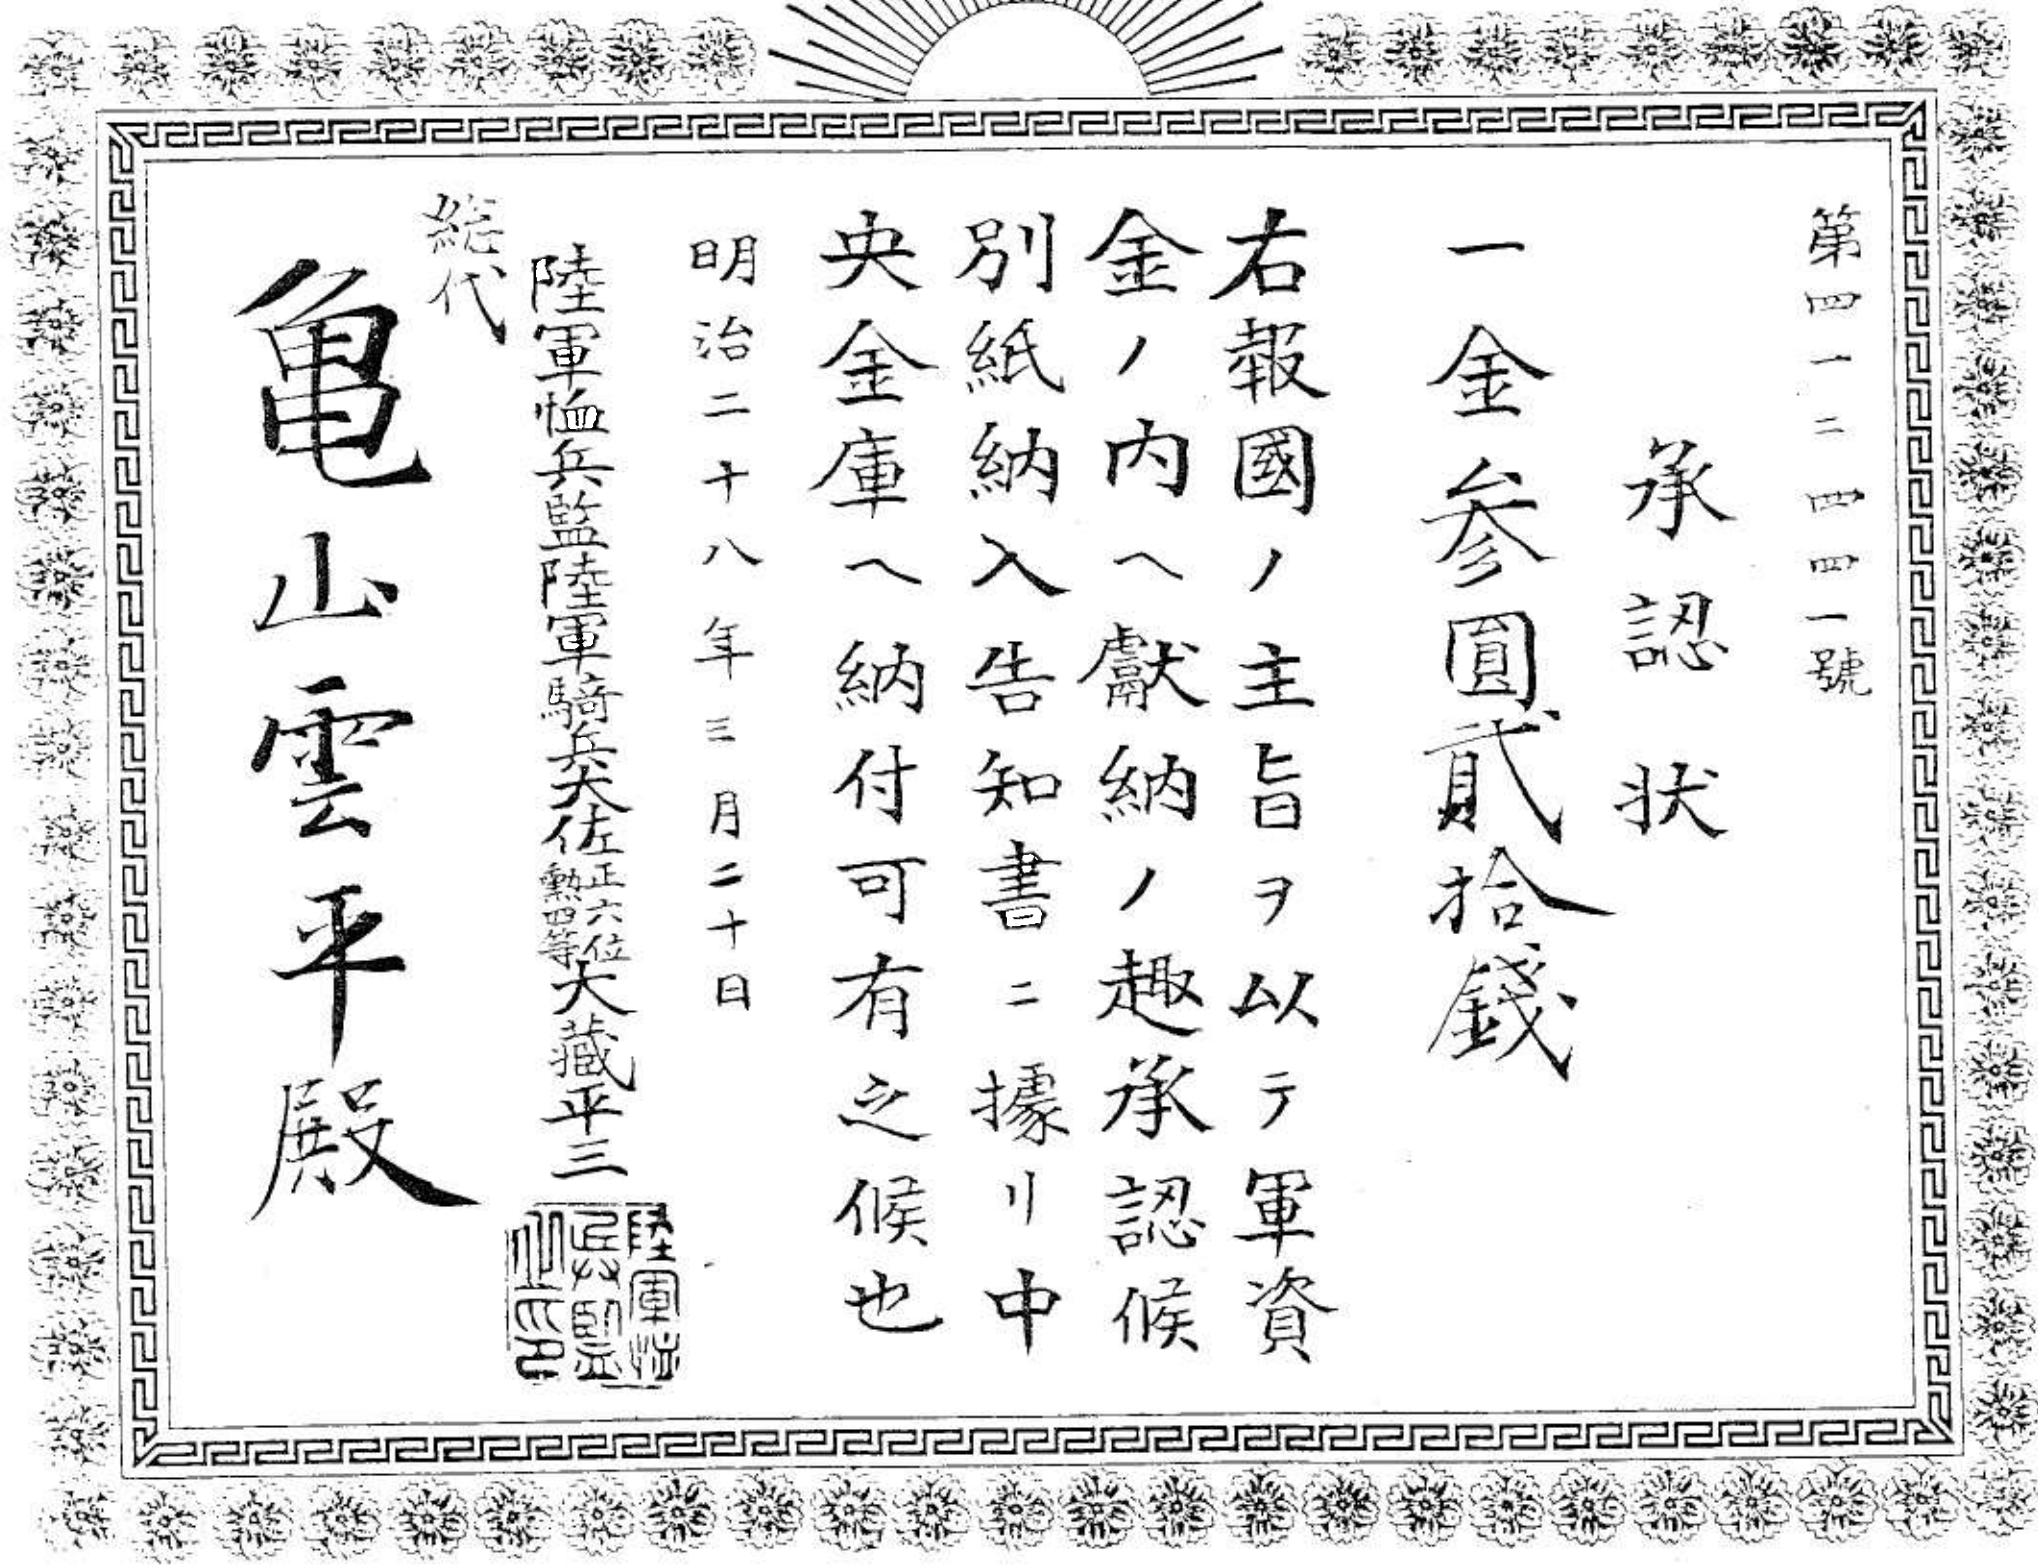 第四一二四四一號
承認状
一金参圓貳拾錢
右報國ノ主旨ヲ以テ軍資
金ノ内ヘ獻納ノ趣承認候
別紙納入告知書ニ據リ中
央金庫ヘ納付可有之候也
明治二十八年三月二十日
陸軍恤兵監陸軍騎兵大佐正六位勲四等大藏平三
陸軍恤兵監之印
総代
亀山雲平殿